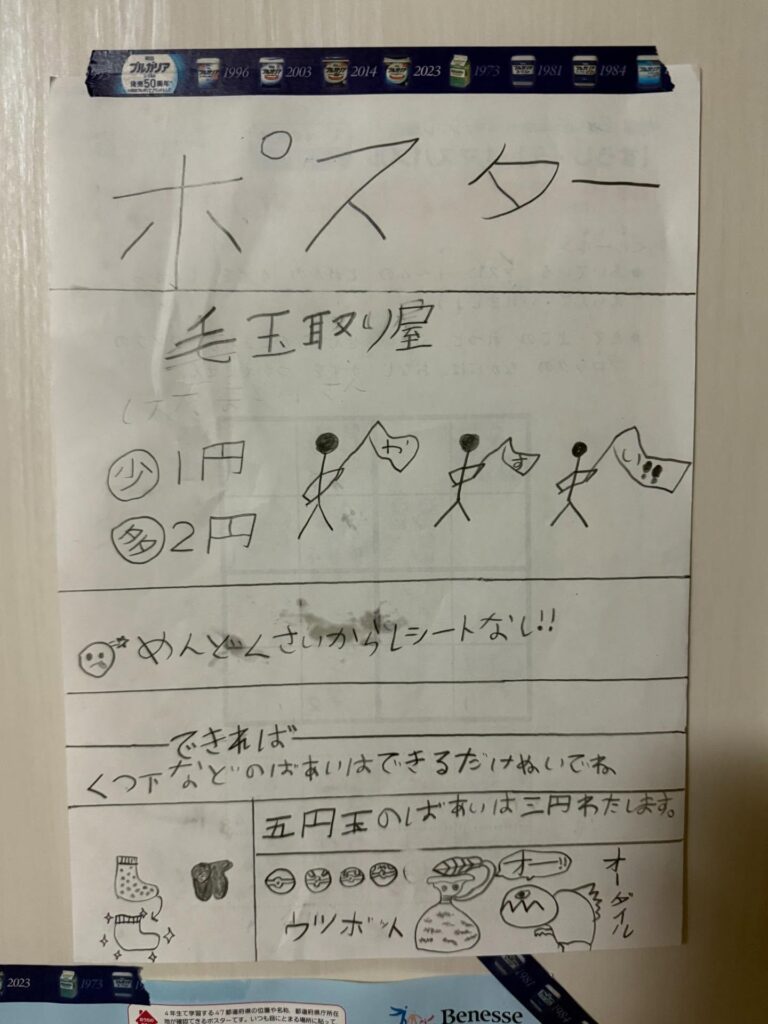 ブルガリア
発売50周年
1996
2003
2014
2023
1973
1981
1984
ポスター
毛玉取り屋
少 1円
多 2円
か
す
い!!
めんどくさいからレシートなし!!
できれば
くつ下などのばあいはできるだけぬいでね
五円玉のばあいは三円わたします。
オー!!
オーダイル
ウツボット
2023
1973
1981
1984
4年生で学習する47都道府県の位置や名称、都道府県庁所在
地が確認できるポスターです。いつも目にとまる場所に貼って、
Benesse